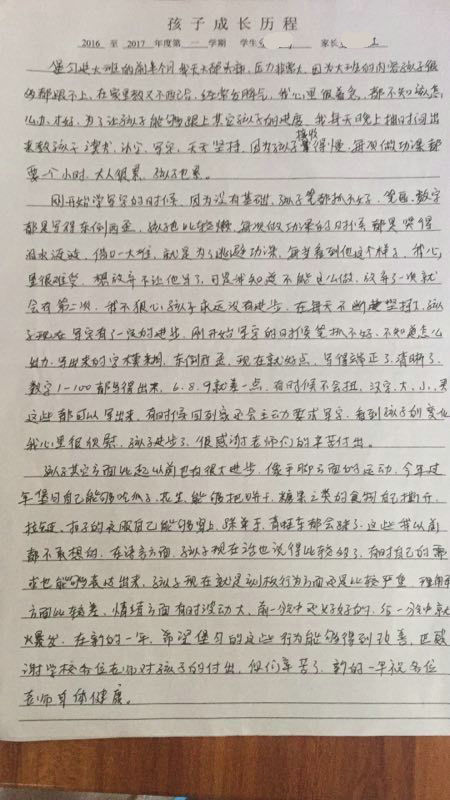 孩子成长历程
2016 至 2017 年度第 一 学期 学生 家长
堡匀进大班的前半个月我天天都头痛,压力非常大,因为大班的内容孩子很
多都跟不上,在家里教又不配合,经常发脾气,我心里很着急,都不知该怎
么办才好,为了让孩子能够跟上其它孩子的进度,我每天晚上抽时间出
接收
来教孩子读书,认字,写字,天天坚持,因为孩子得慢,每次做功课都
要一个小时,大人很累,孩子也累。
刚开始学写字的时候,因为没有基础,孩子笔都抓不好,笔画,数字
都是写得东倒西歪,孩子也比较懒,每次做功课的时候都是哭得
泪水流流,借口一大堆,就是为了逃避功课,每当看到他这个样子,我心
里很难受,想放弃不让他写了,可是我知道不能这么做,放弃了一次就
会有第二次,我不狠心孩子永远没有进步,在每天不断地坚持下,孩
子现在写字有了一定的进步,刚开始写字的时候笔抓不好,不知道怎么
出力,写出来的字模糊,东倒西歪,现在就好点,写得端正了,清晰了,
数字1-100都写得出来,6.8.9就差一点,有时候不会扭,汉字,大,小,
这些都可以写出来,有时候回到家还会主动要求写字,看到孩子的变化
我心里很欣慰,孩子进步了,很感谢老师们的辛苦付出。
孩子其它方面比起以前也有很大进步,像手脚方面的运动,今年过
年堡匀自己能够吃瓜子,花生,能够把饼干,糖果之类的食物自己撕开,
拉链,扣子的衣服自己能够穿上,踩单车,青蛙车都会踩了,这些我以前
都不敢想的,在语言方面,孩子现在话也说得比较多了,有时自己的需
求也能够表达出来,孩子现在就是刻板行为方面还是比较严重,理解
方面比较差,情绪方面有时波动大,前一分钟还好好的,后一分钟就
火爆发,在新的一年,希望堡匀的这些行为能够得到改善,也感
谢学校各位老师对孩子的付出,你们辛苦了,新的一年祝各位
老师身体健康。